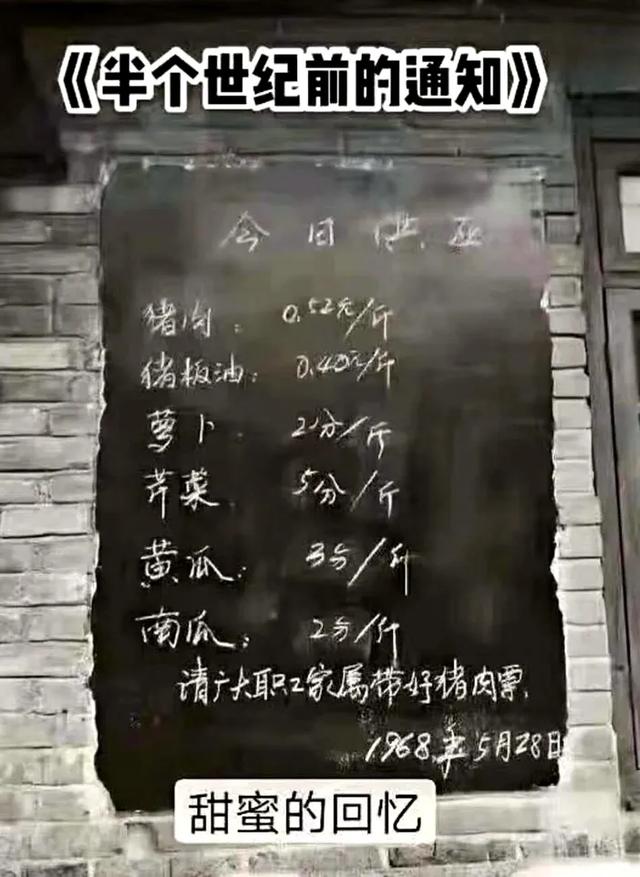 《半个世纪前的通知》
今日供应
猪肉: 0.52元/斤
猪板油: 0.40元/斤
萝卜 2分/斤
芹菜 5分/斤
黄瓜: 3分/斤
南瓜: 2分/斤
请广大职工家属带好猪肉票.
1968年5月28日
甜蜜的回忆